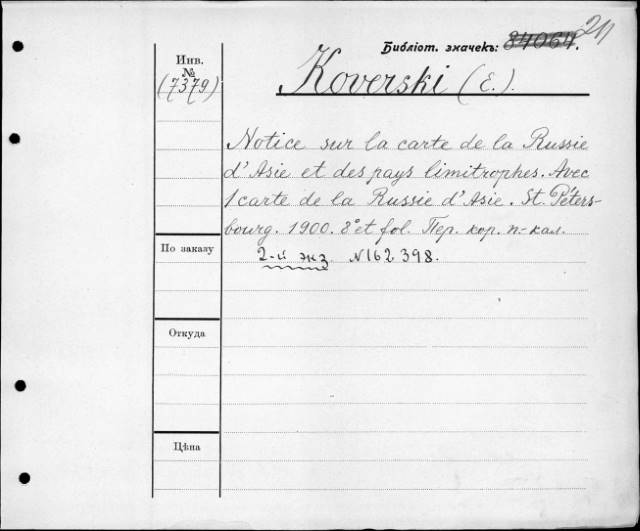 Библіот. значекъ: 84064.
Инв.
№
(7379)
Koverski (E.).
Notice sur la carte de la Russie
d'Asie et des pays limitrophes. Avec
1 carte de la Russie d'Asie. St. Péters-
bourg. 1900. 8° et fol. Пер. кор. п.-кал.
По заказу
2-й экз N162398.
Откуда
Цѣна